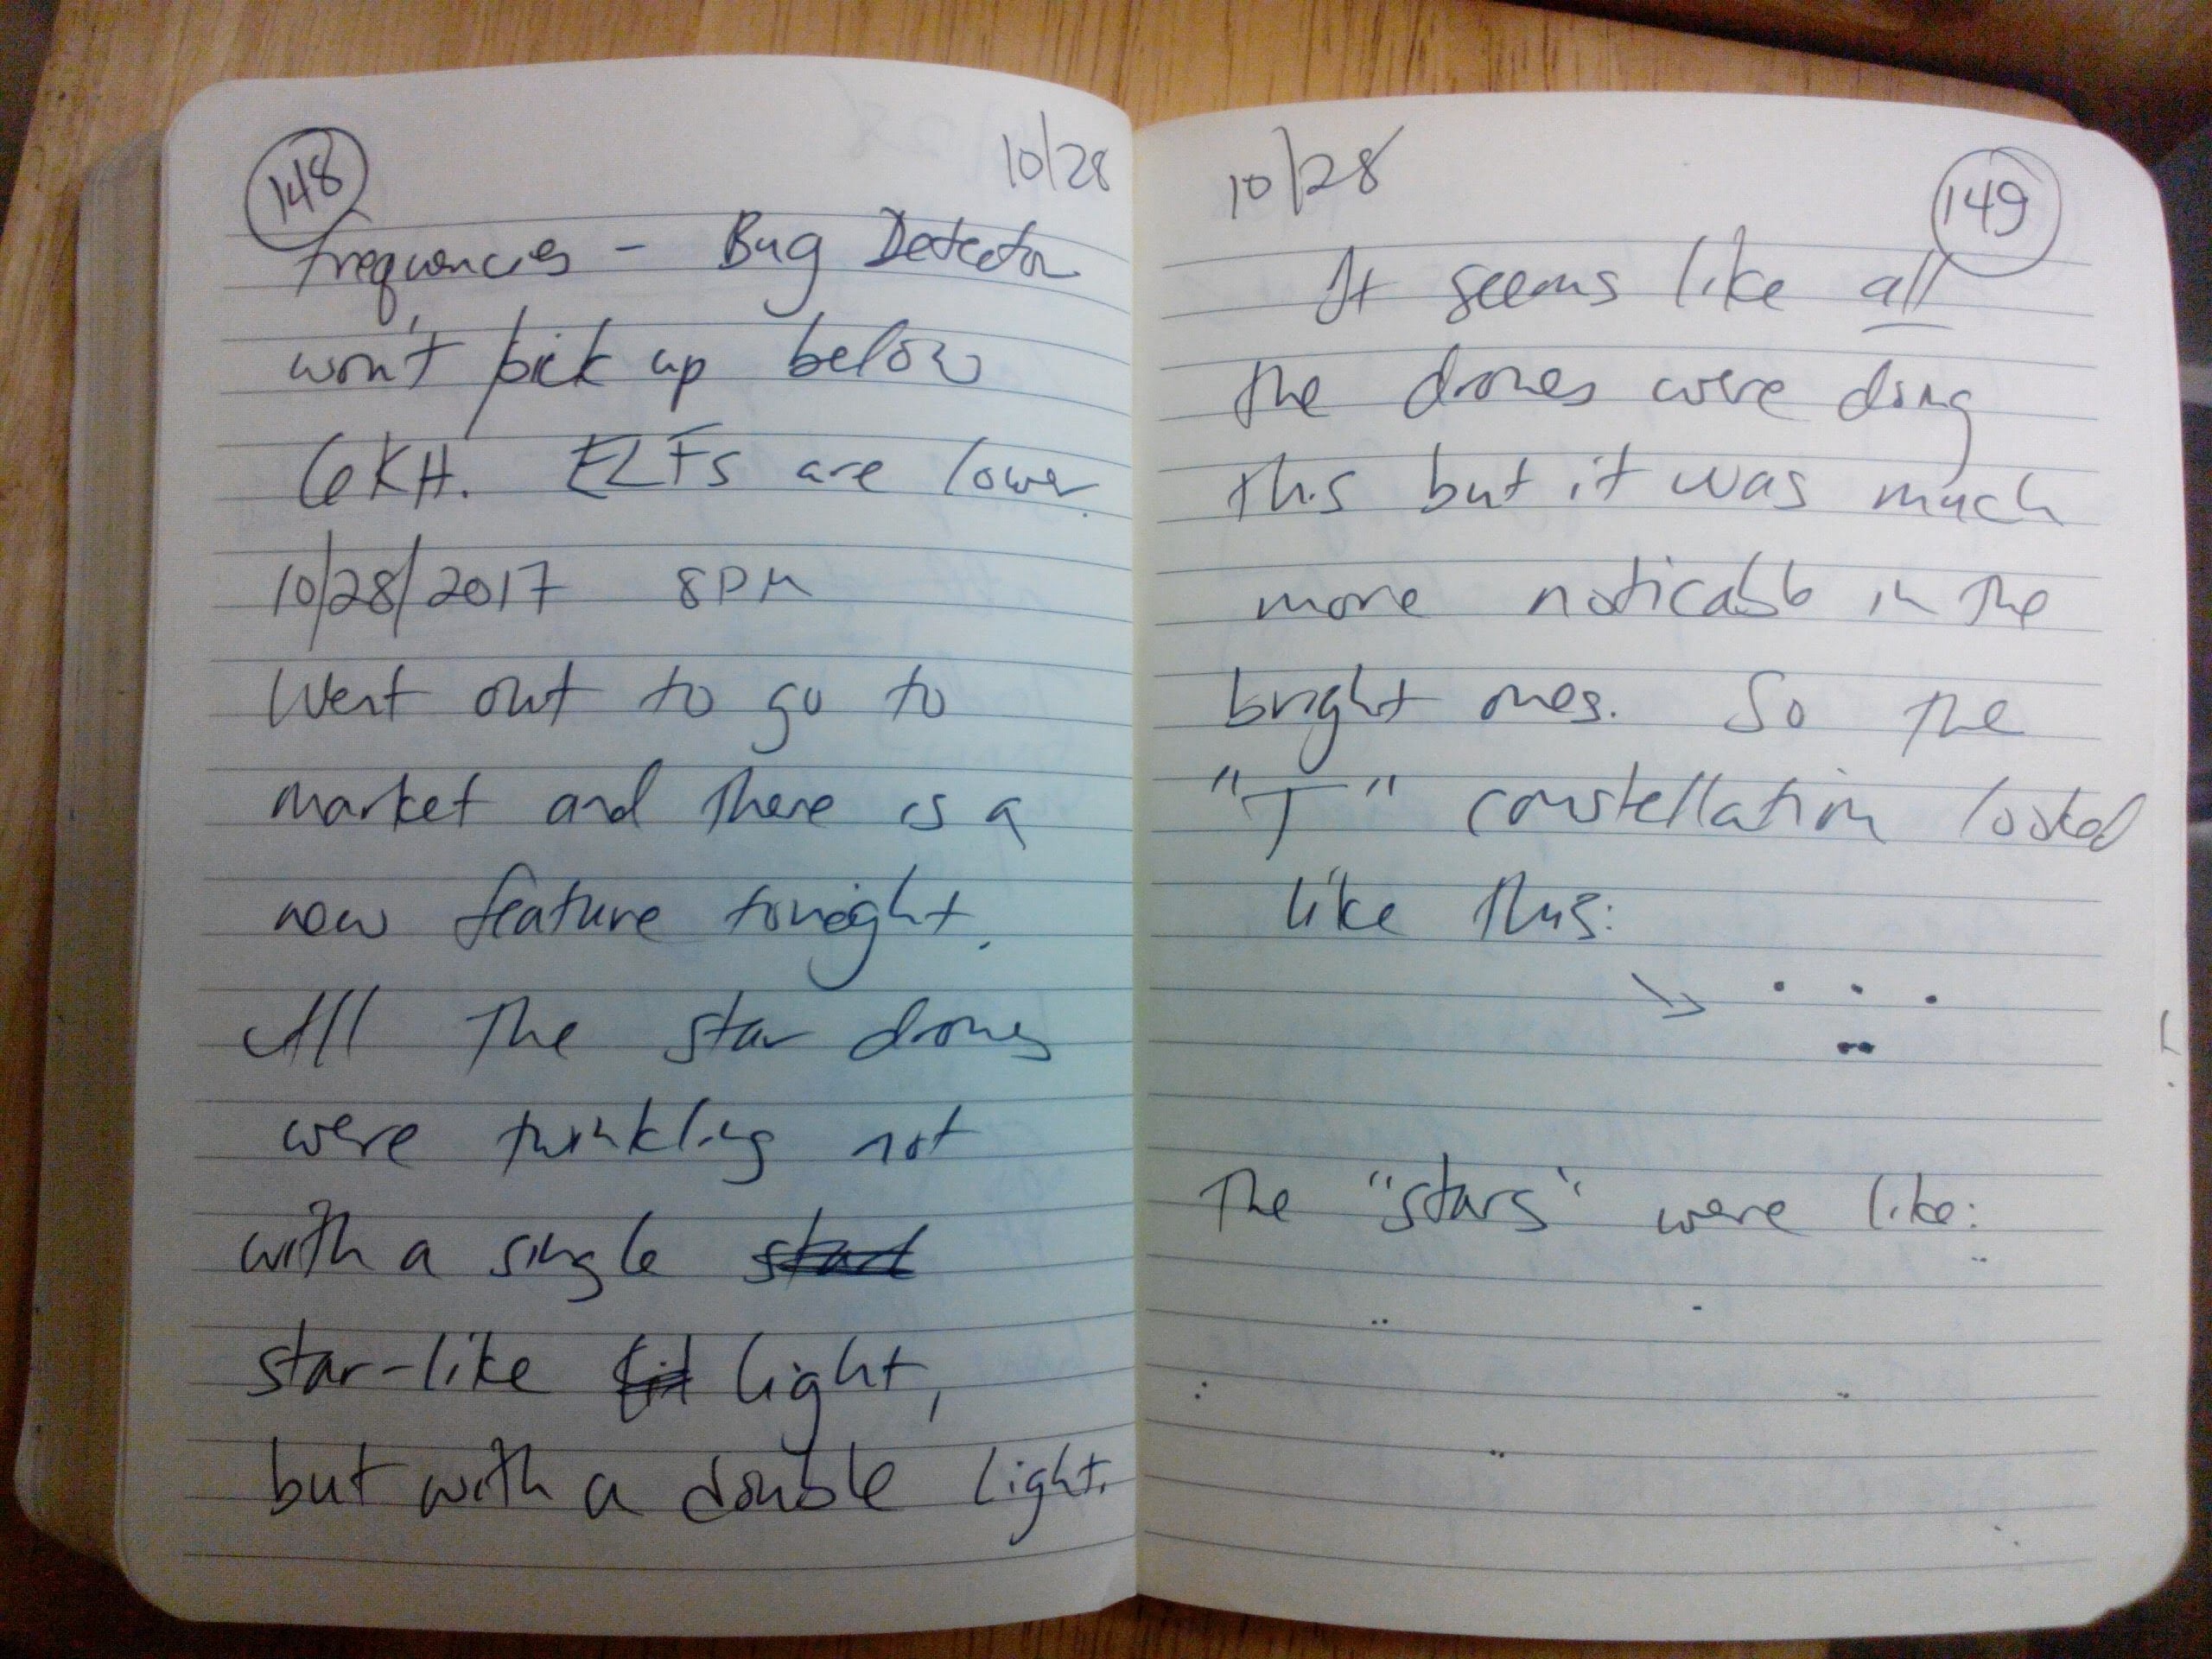 148
10/28
frequencies - Bug Detector
won't pick up below
6KH. ELFs are lower.
10/28/2017 8PM
Went out to go to
market and there is a
new feature tonight.
All the star drones
were twinkling not
with a single
star-like light,
but with a double light.
10/28
149
It seems like all
the drones were doing
this but it was much
more noticable in the
bright ones. So the
"T" constellation looked
like this:
The "stars" were like: